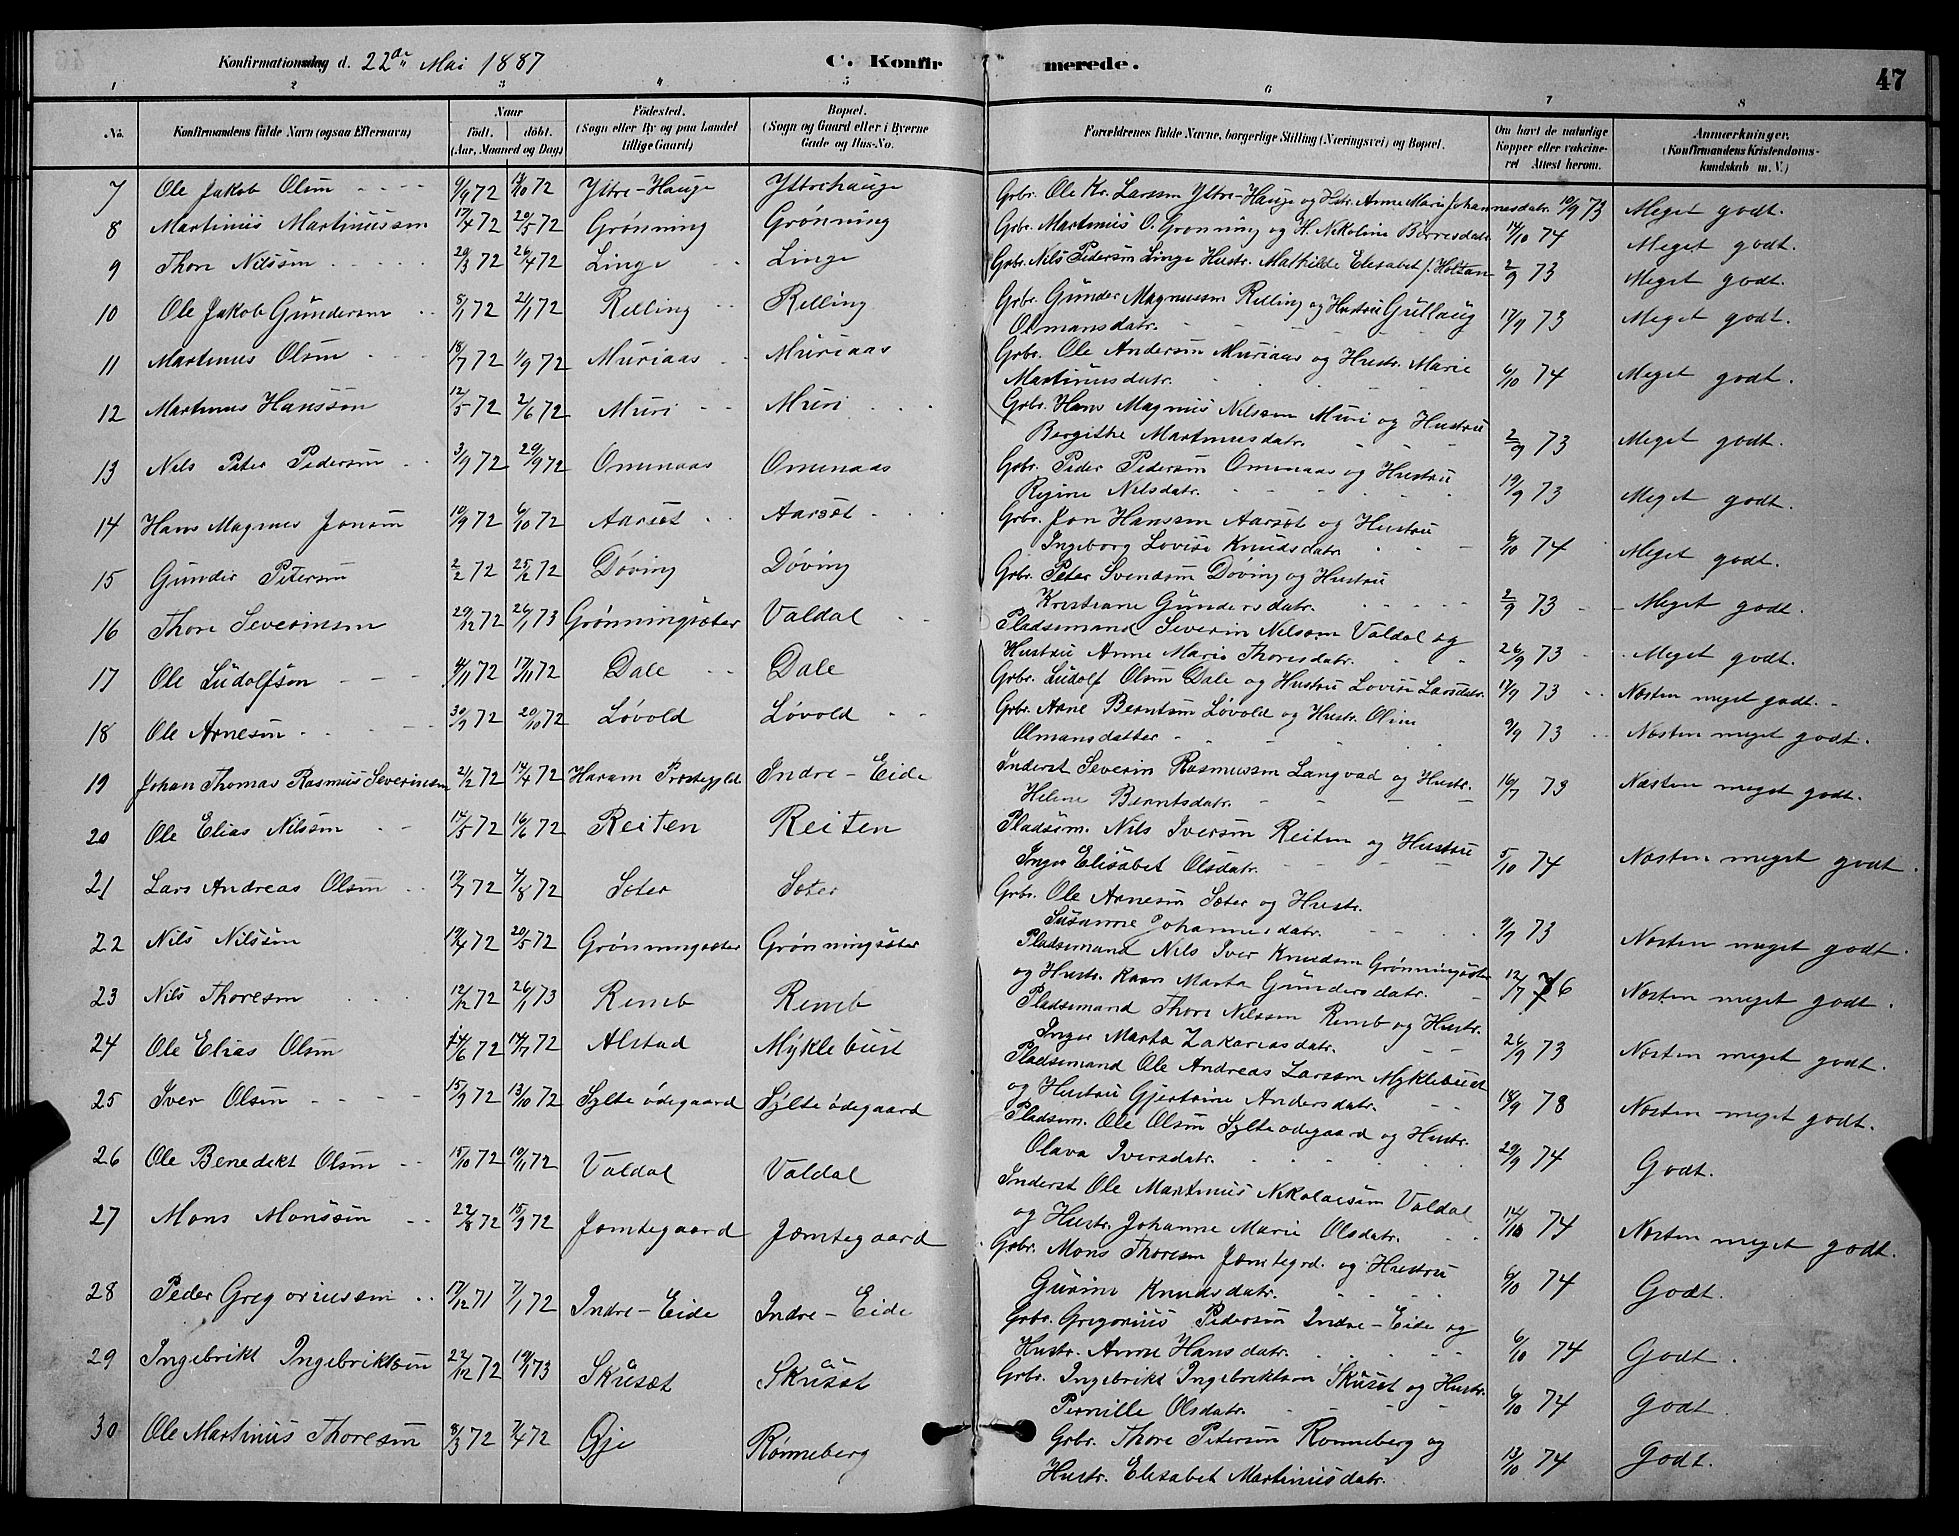 Konfirmationsdag d. 22de Mai 1887 C. Konfirmerede. 47
1 2 3 4 5 6 7 8
No. Konfirmandens fulde Navn (ogsaa Efternavn) Naar født. døbt. (Aar, Maaned og Dag) Födested. (Sogn eller By og paa Landet tillige Gaard) Bopæl. (Sogn og Gaard eller i Byerne Gade og Hus-No. Forældrenes fulde Navne, borgerlige Stilling (Næringsvei) og Bopæl. Om havt de naturlige Kopper eller vakcineret Attest herom. Anmærkninger. (Konfirmandens Kristendomskundskab m. V.)
7 Ole Jakob Olsen 9/9 72 72 Yttre-Hauge Yttrehauge Grbr. Ole Kr. Larsen Yttre-Hauge og Hstr. Anne Marie Johannesdatr. 10/9 73 Meget godt.
8 Martinus Martinussen 17/4 72 20/5 72 Grønning Grønning Grbr. Martinus O. Grønning og H. Nikoline Borresdatr 14/10 74 Meget godt.
9 Thore Nilssen 20/3 72 26/4 72 Linge Linge Grbr. Nils Pedersen Linge Hustr. Mathilde Elisabet f. Holtan 2/9 73 Meget godt.
10 Ole Jakob Gundersen 8/1 72 21/1 72 Relling Relling Grbr. Gunder Magnussen Relling og Hustru Gullaug
Olmansdatr. 17/9 73 Meget godt.
11 Martinus Olsen 18/7 72 1/9 72 Muriaas Muriaas Grbr. Ole Andersen Muriaas og Hustr. Marie
Martinusdatr. 6/10 74 Meget godt.
12 Martinus Hanssen 12/5 72 2/6 72 Muri Muri Grbr. Hans Magnus Nilssen Muri og Hustru
Bergithe Martinusdatr. 2/9 73 Meget godt.
13 Nils Peter Pedersen 3/9 72 29/9 72 Omenaas Omenaas Grbr. Peder Pedersen Omenaas og Hustru
Regine Nilsdatr. 19/9 73 Meget godt.
14 Hans Magnus Jonsen 10/9 72 6/10 72 Aarset Aarset Grbr. Jon Hanssen Aarset og Hustru
Ingeborg Lovise Knudsdatr. 6/10 74 Meget godt.
15 Gunder Petersen 2/2 72 25/2 72 Døving Døving Grbr. Peter Svendsen Døving og Hustru
Kristiane Gundersdatr. 2/9 73 Meget godt.
16 Thore Severinsen 29/12 72 26/1 73 Grønningsæter Valdal Pladsemand Severin Nilsen Valdal og
Hustru Anne Marie Thoresdatr. 26/9 73 Meget godt.
17 Ole Ludolfsen 4/11 72 17/11 72 Dale Dale Grbr. Ludolf Olsen Dale og Hustru Lovise Larsdatr. 17/9 73 Næsten meget godt.
18 Ole Arnesen 30/9 72 20/10 72 Løvold Løvold Grbr. Arne Berntsen Løvold og Hustr. Oline
Olmansdatter 9/9 73 Næsten meget godt.
19 Johan Thomas Rasmus Severinsen 2/2 72 14/4 72 Haram Prestegjeld Indre-Eide Inderst Severin Rasmussen Langvad og Hustr.
Helene Berntsdatr. 16/7 73 Næsten meget godt.
20 Ole Elias Nilsen 17/5 72 16/6 72 Reiten Reiten Pladsem. Nils Iversen Reiten og Hustru
Inger Elisabet Olsdatr. 5/10 74 Næsten meget godt.
21 Lars Andreas Olsen 17/7 72 4/8 72 Sæter Sæter Grbr. Ole Arnesen Sæter og Hustr.
Susanne Johannesdatr. 9/9 73 Næsten meget godt.
22 Nils Nilssen 19/4 72 20/5 72 Grønningsæter Grønningsæter Pladsemand Nils Iver Knudsen Grønningsæter
og Hustr. Karen Marta Gundersdatr. 12/7 76 Næsten meget godt.
23 Nils Thoresen 12/12 72 26/1 73 Remb Remb Pladsemand Thore Nilssen Remb og Hustr.
Inger Marta Zakariasdatr. 26/9 73 Næsten meget godt.
24 Ole Elias Olsen 14/6 72 14/7 72 Alstad Myklebust Pladsemand Ole Andreas Larssen Myklebust
og Hustru Gjertine Andersdatr. 18/9 78 Næsten meget godt.
25 Iver Olsen 15/9 72 13/10 72 Sylteødegaard Sylteødegaard Pladsem. Ole Olsen Sylteødegaard og Hustr.
Olava Iversdatr. 29/9 74 Godt.
26 Ole Benedikt Olsen 15/10 72 10/11 72 Valdal Valdal Inderst Ole Martinus Nikolaisen Valdal
og Hustr. Johanne Marie Olsdatr. 14/10 74 Næsten meget godt.
27 Mons Monssen 22/8 72 15/9 72 Jamtegaard Jamtegaard Grbr. Mons Thoresen Jæmtegrd. og Hustru
Gurine Knudsdatr. 6/10 74 Godt.
28 Peder Gregoriussen 17/12 71 7/1 72 Indre-Eide Indre-Eide Grbr. Gregorius Pedersen Indre-Eide og
Hustr. Anne Hansdatr. 6/10 74 Godt.
29 Ingebrikt Ingebriktsen 22/12 72 73 Skuset Skuset Grbr. Ingebrikt Ingebriktsen Skuset og Hustr.
Pernille Olsdatr. 6/10 74 Godt.
30 Ole Martinus Thoresen 8/3 72 7/4 72 Øje Rønneberg Grbr. Thore Petersen Rønneberg og
Hustr. Elisabet Martinusdatr. 13/10 74 Godt.